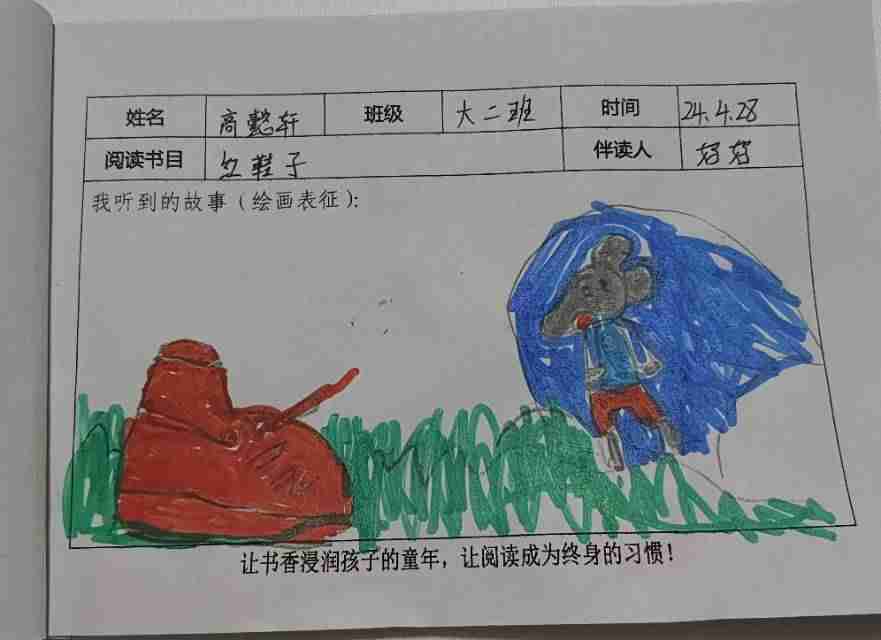 姓名 高懿轩 班级 大二班 时间 24.4.28
阅读书目 红鞋子 伴读人
我听到的故事（绘画表征）：
让书香浸润孩子的童年，让阅读成为终身的习惯！